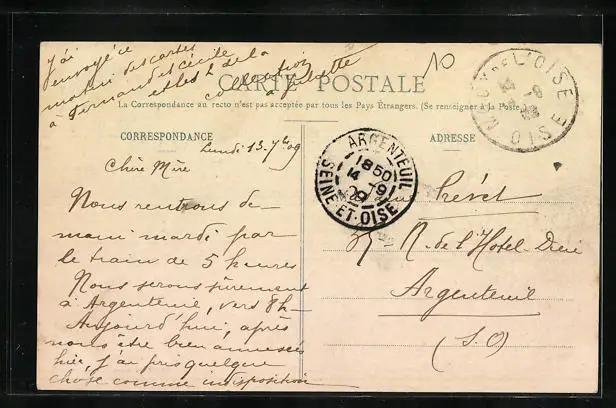 J'ai
envoyé ce
matin des cartes
à Fernand et Cécile
et les t de la
collection
à Juliette
10
CARTE POSTALE
La Correspondance au recto n'est pas acceptée par tous les Pays Étrangers. (Se renseigner à la Poste)
CORRESPONDANCE
ADRESSE
Lundi 13 7bre 09
Chère Mère
Nous rentrons de-
main mardi par
le train de 5 heures
Nous serons sûrement
à Argenteuil, vers 8h-
Aujourd'hui, après
nous être bien amusés
hier, j'ai pris quelque
chose comme indisposition
Prévot
35 R. de l'Hotel-Dieu
Argenteuil
(S.O)
ARGENTEUIL
18 50
14 -9
09
SEINE-ET-OISE
MOUY DE L'OISE
OISE